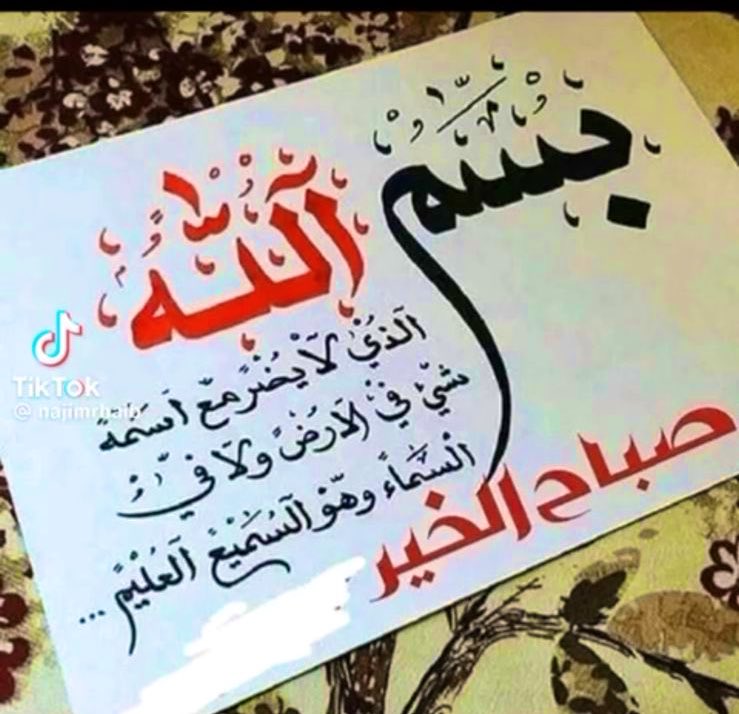 بسم الله
الذي لا يضر مع اسمه
شيء في الارض ولا في
السماء وهو السميع العليم ...
صباح الخير
TikTok
@najimrhaib